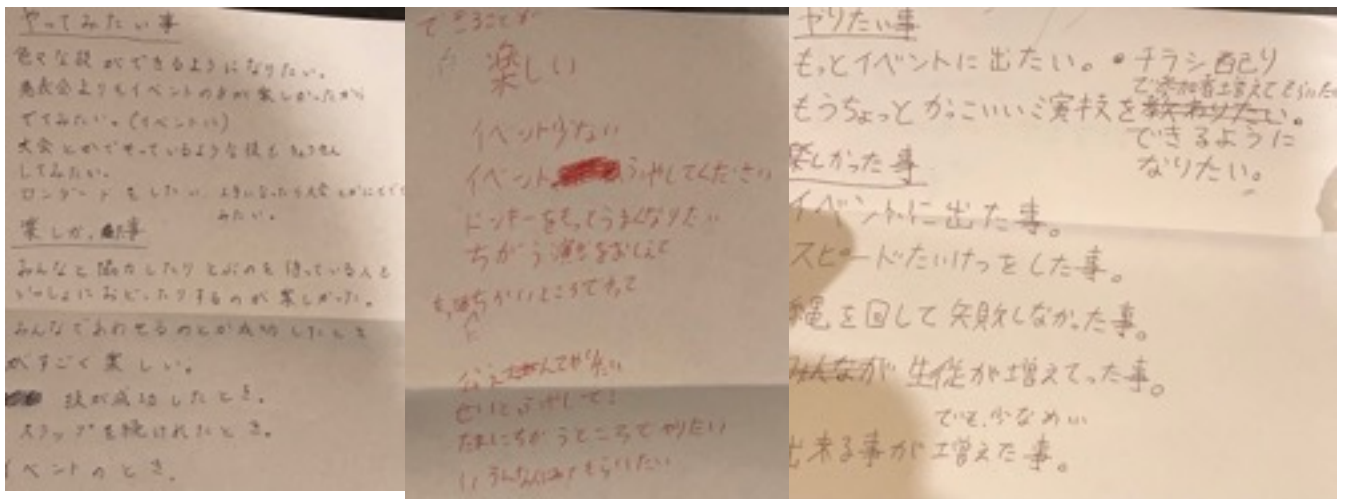 やってみたい事
色々な技ができるようになりたい。
発表会よりもイベントの方が楽しかったから
でてみたい。(イベントに)
大会とかでやっているような技もちょうせん
してみたい。
ロンダートをしたい
みたい。
楽しかった事
みんなと協力したりとぶのを待っている人と
いっしょにおどったりするのが楽しかった。
みんなであわせるのとか成功したとき
がすごく楽しい。
技が成功したとき。
ステップを続けれたとき。
イベントのとき。
できることが
楽しい
イベント少ない
イベント ふやしてください
ドンキーをもってうまくなりたい
ちがう演技をおしえて
ちかいところでやって
せいとふやして!
たまにちがうところでやりたい
やりたい事
もっとイベントに出たい。
•チラシ配り
で参加者増えてもらいたい
もうちょっとかっこいい演技を
できるように
なりたい。
楽しかった事
イベントに出た事。
スピードたいけつをした事。
縄を回して失敗しなかった事。
生徒が増えてった事。
でも、少なめい
出来る事が増えた事。